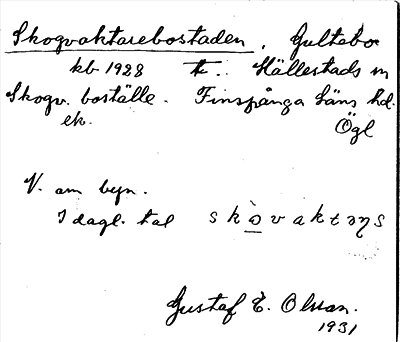 Skogvaktarebostaden, Gultebo
kb 1928 t.. Hällestads sn
Skogv. boställe. Finspånga läns hd.
ek. Ögl
V. om byn.
I dagl. tal
Gustaf E. Olsson.
1931